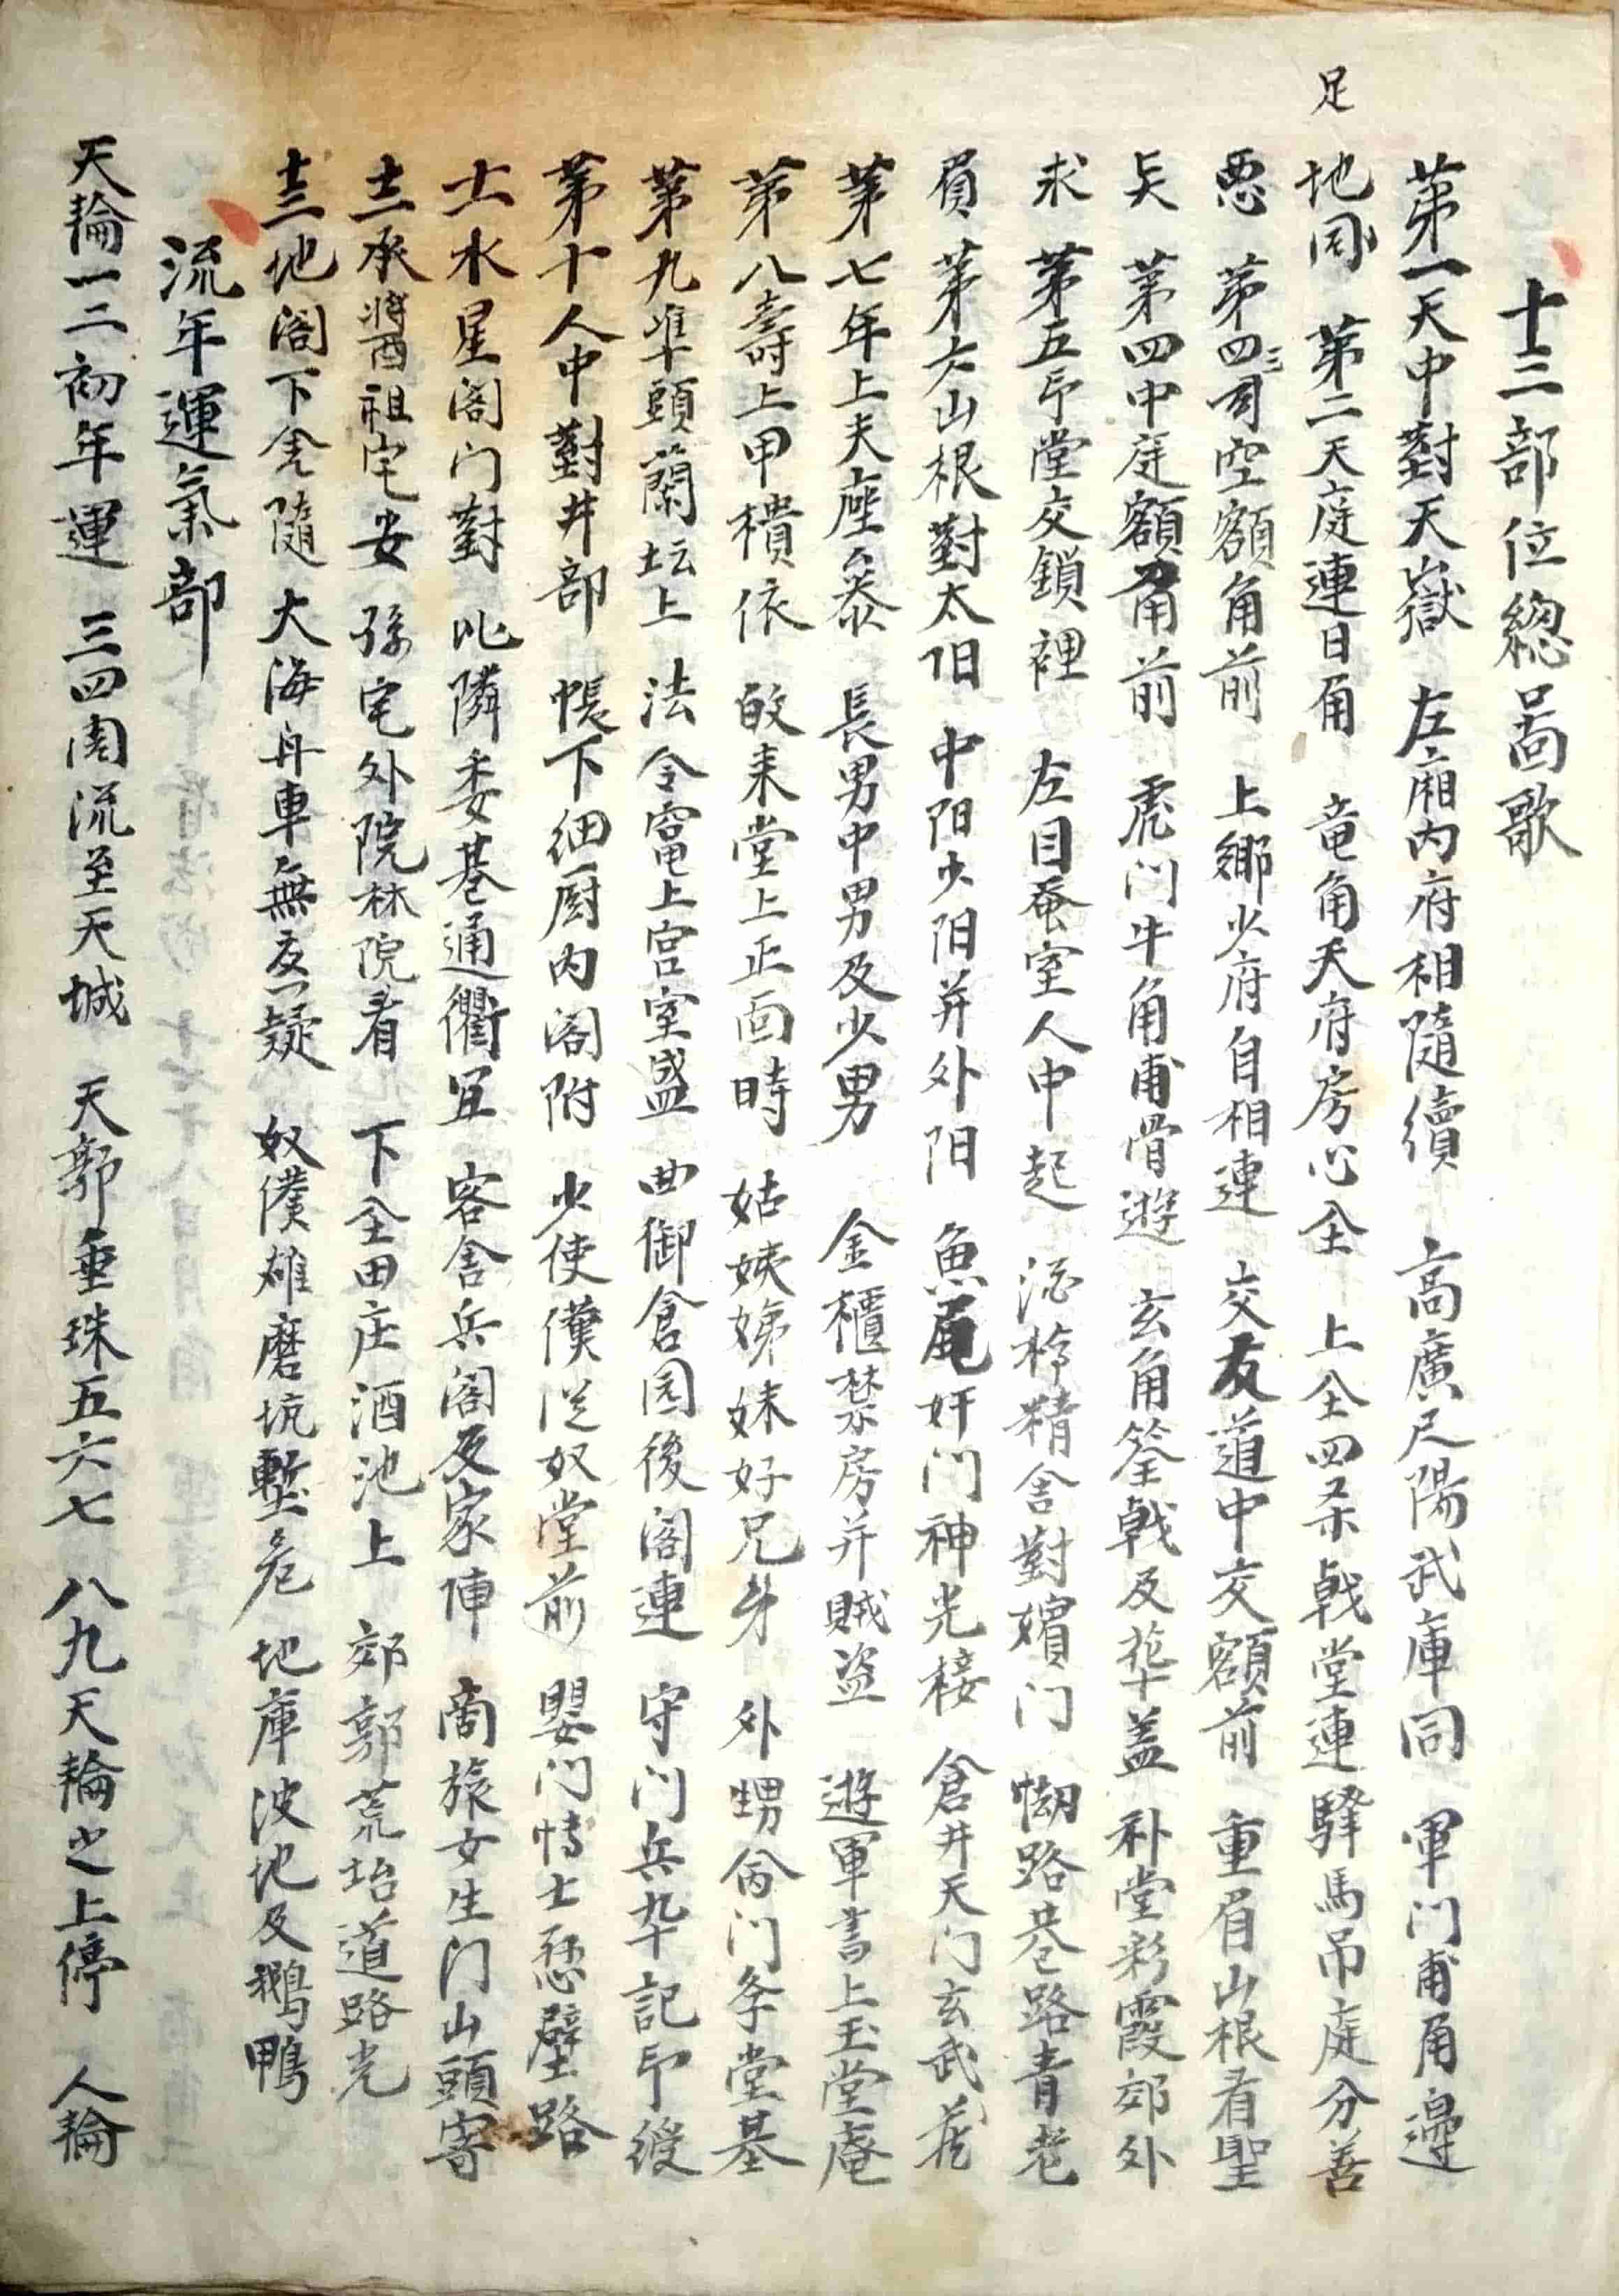 十三部位總啚歌
第一天中對天嶽 左廂內府相隨續 高廣尺陽武庫同 軍门甫角邉
足
地同 第二天庭連日角 竜角天府房心全 上全四杀戟堂連驛馬吊庭分善
悪 第三司空額角前 上鄉少府自相連 交友道中交額前 重眉山根看聖
矣 第四中庭額角前 虎门牛角甫骨遊 玄角筌戟及華盖 补堂彩霞郊外
求 第五印堂交鎖裡 左目蚕室人中起 酒 精舍對嬪门 路巷路青老
眉 第六山根對太阳 中阳少阳并外阳 魚尾奸门神光接 倉井天门玄武
第七年上夫座 長男中男及少男 金櫃禁房并賊盗 遊軍書上玉堂庵
第八壽上甲樻依 皈来堂上正面時 姑姨娣妹好兄弟 外甥 门 堂基
第九準頭蘭坛上 法令竈上宫室盛 曲御倉园後阁連 守门兵卒記印绶
第十人中對井部 帳下细厨内阁附 少使僕从奴堂前 嬰门博士懸壁路
十一水星阁门對 比隣委巷通衢宜 客舍兵阁及家 商旅女生门山頭寄
十二承醬祖宅安 孫宅外院林院看 下全田庄酒池上 郊郭荒坮道路光
十三地阁下舍隨 大海舟車無疑 奴僕碓磨坑塹危 地庫波地及鵝鴨
流年運氣部
天輪一二初年運 三四周流至天城 天郭垂珠五六七 八九天輪之上停 人輪